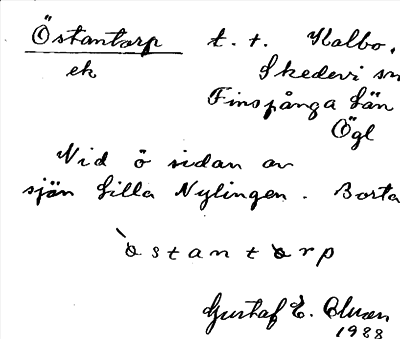 Östantorp t. t. Kalbo,
ek Skedevi sn
Finspånga län
Ögl
Vid ö sidan av
sjön Lilla Nylingen. Borta
òstantòrp
Gustaf E.
1988